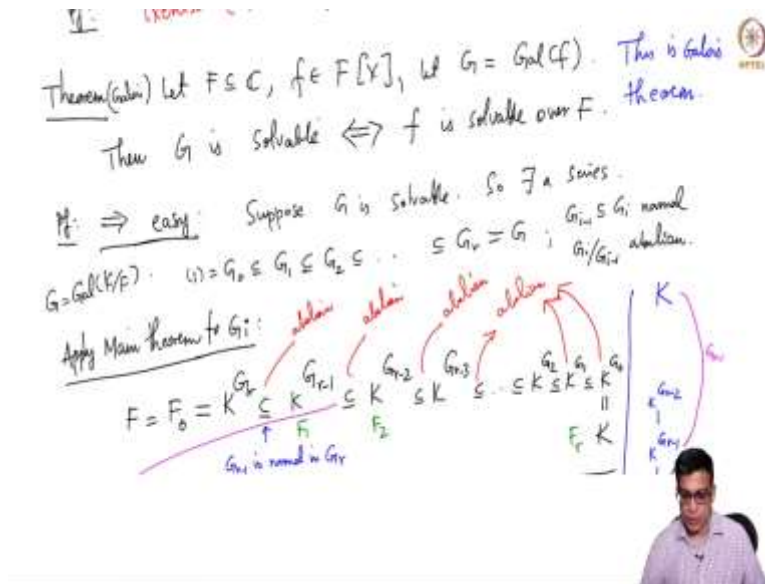 Pf:
Theorem (Galois) Let F ⊆ C, f ∈ F[X], let G = Gal(f). This is Galois theorem.
Then G is solvable ⇔ f is solvable over F.
Pf: ⇒ easy: Suppose G is solvable. So ∃ a series.
G = Gal(K/F). (1) = G₀ ⊆ G₁ ⊆ G₂ ⊆ .. ⊆ Gᵣ = G ; Gᵢ₋₁ ⊆ Gᵢ normal
Gᵢ/Gᵢ₋₁ abelian.
Apply Main theorem to Gᵢ:
abelian abelian abelian abelian
F = F₀ = K^Gᵣ ⊆ K^Gᵣ₋₁ ⊆ K^Gᵣ₋₂ ⊆ K^Gᵣ₋₃ ⊆ .. ⊆ K^G₂ ⊆ K^G₁ ⊆ K^G₀
F₁ F₂ Fᵣ K
Gᵣ₋₁ is normal in Gᵣ
K
K^Gᵣ₋₂
K^Gᵣ₋₁
NPTEL